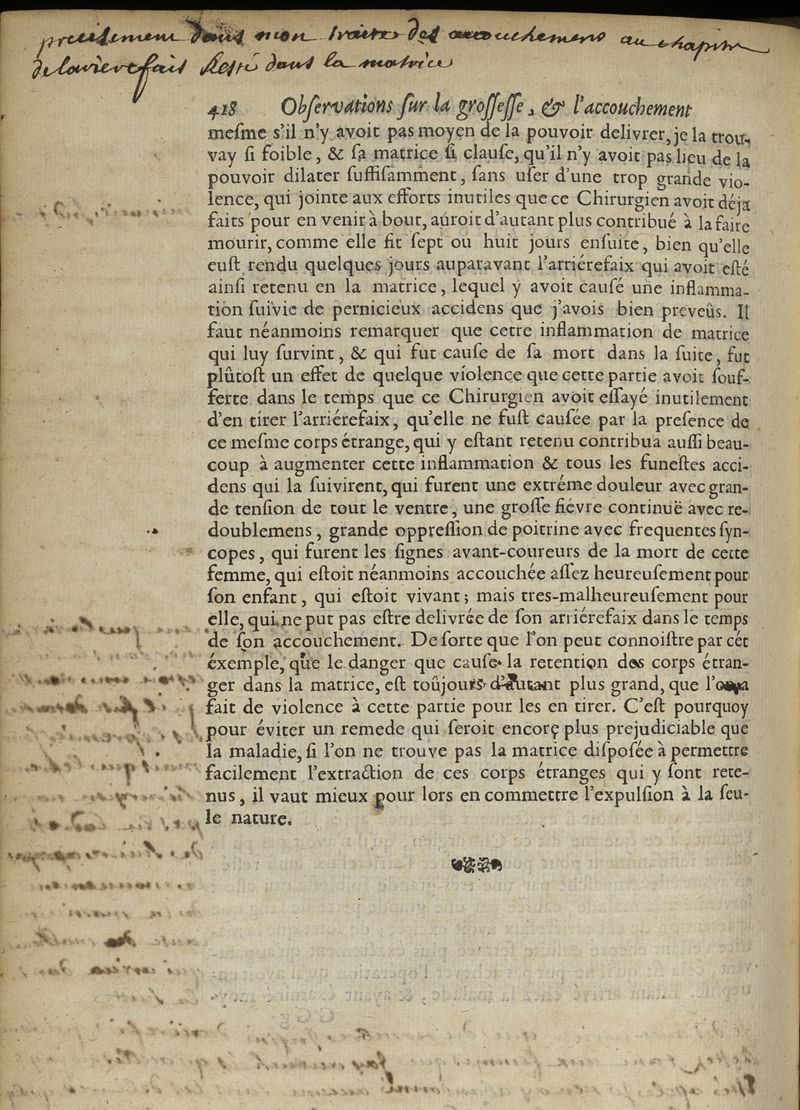 precisement dans mon traitté des accouchemens au chapitre
de l'arrierefais resté dans la matrice
428 Obſervations ſur la groſſeſſe, & l'accouchement
meſme s'il n'y avoit pas moyen de la pouvoir delivrer, je la trou-
vay ſi foible, & ſa matrice ſi clauſe, qu'il n'y avoit pas lieu de la
pouvoir dilater ſuffiſamment, ſans uſer d'une trop grande vio-
lence, qui jointe aux efforts inutiles que ce Chirurgien avoit déja
faits pour en venir à bout, auroit d'autant plus contribué à la faire
mourir, comme elle fit ſept ou huit jours enſuite, bien qu'elle
euſt rendu quelques jours auparavant l'arriérefaix qui avoit eſté
ainſi retenu en la matrice, lequel y avoit cauſé une inflamma-
tion ſuivie de pernicieux accidens que j'avois bien preveûs. Il
faut néanmoins remarquer que cette inflammation de matrice
qui luy ſurvint, & qui fut cauſe de ſa mort dans la ſuite, fut
plûtoſt un effet de quelque violence que cette partie avoit ſouf-
ferte dans le temps que ce Chirurgien avoit eſſayé inutilement
d'en tirer l'arriérefaix, qu'elle ne fuſt cauſée par la preſence de
ce meſme corps étrange, qui y eſtant retenu contribua auſſi beau-
coup à augmenter cette inflammation & tous les funeſtes acci-
dens qui la ſuivirent, qui furent une extréme douleur avec gran-
de tenſion de tout le ventre, une groſſe fiévre continuë avec re-
doublemens, grande oppreſſion de poitrine avec frequentes ſyn-
copes, qui furent les ſignes avant-coureurs de la mort de cette
femme, qui eſtoit néanmoins accouchée aſſez heureuſement pour
ſon enfant, qui eſtoit vivant; mais tres-malheureuſement pour
elle, qui ne put pas eſtre delivrée de ſon arriérefaix dans le temps
de ſon accouchement. De ſorte que l'on peut connoiſtre par cét
éxemple, que le danger que cauſe la retention des corps étran-
ger dans la matrice, eſt toûjours d'autant plus grand, que l'on a
fait de violence à cette partie pour les en tirer. C'eſt pourquoy
pour éviter un remede qui ſeroit encore plus prejudiciable que
la maladie, ſi l'on ne trouve pas la matrice diſpoſée à permettre
facilement l'extraction de ces corps étranges qui y ſont rete-
nus, il vaut mieux pour lors en commettre l'expulſion à la ſeu-
le nature.